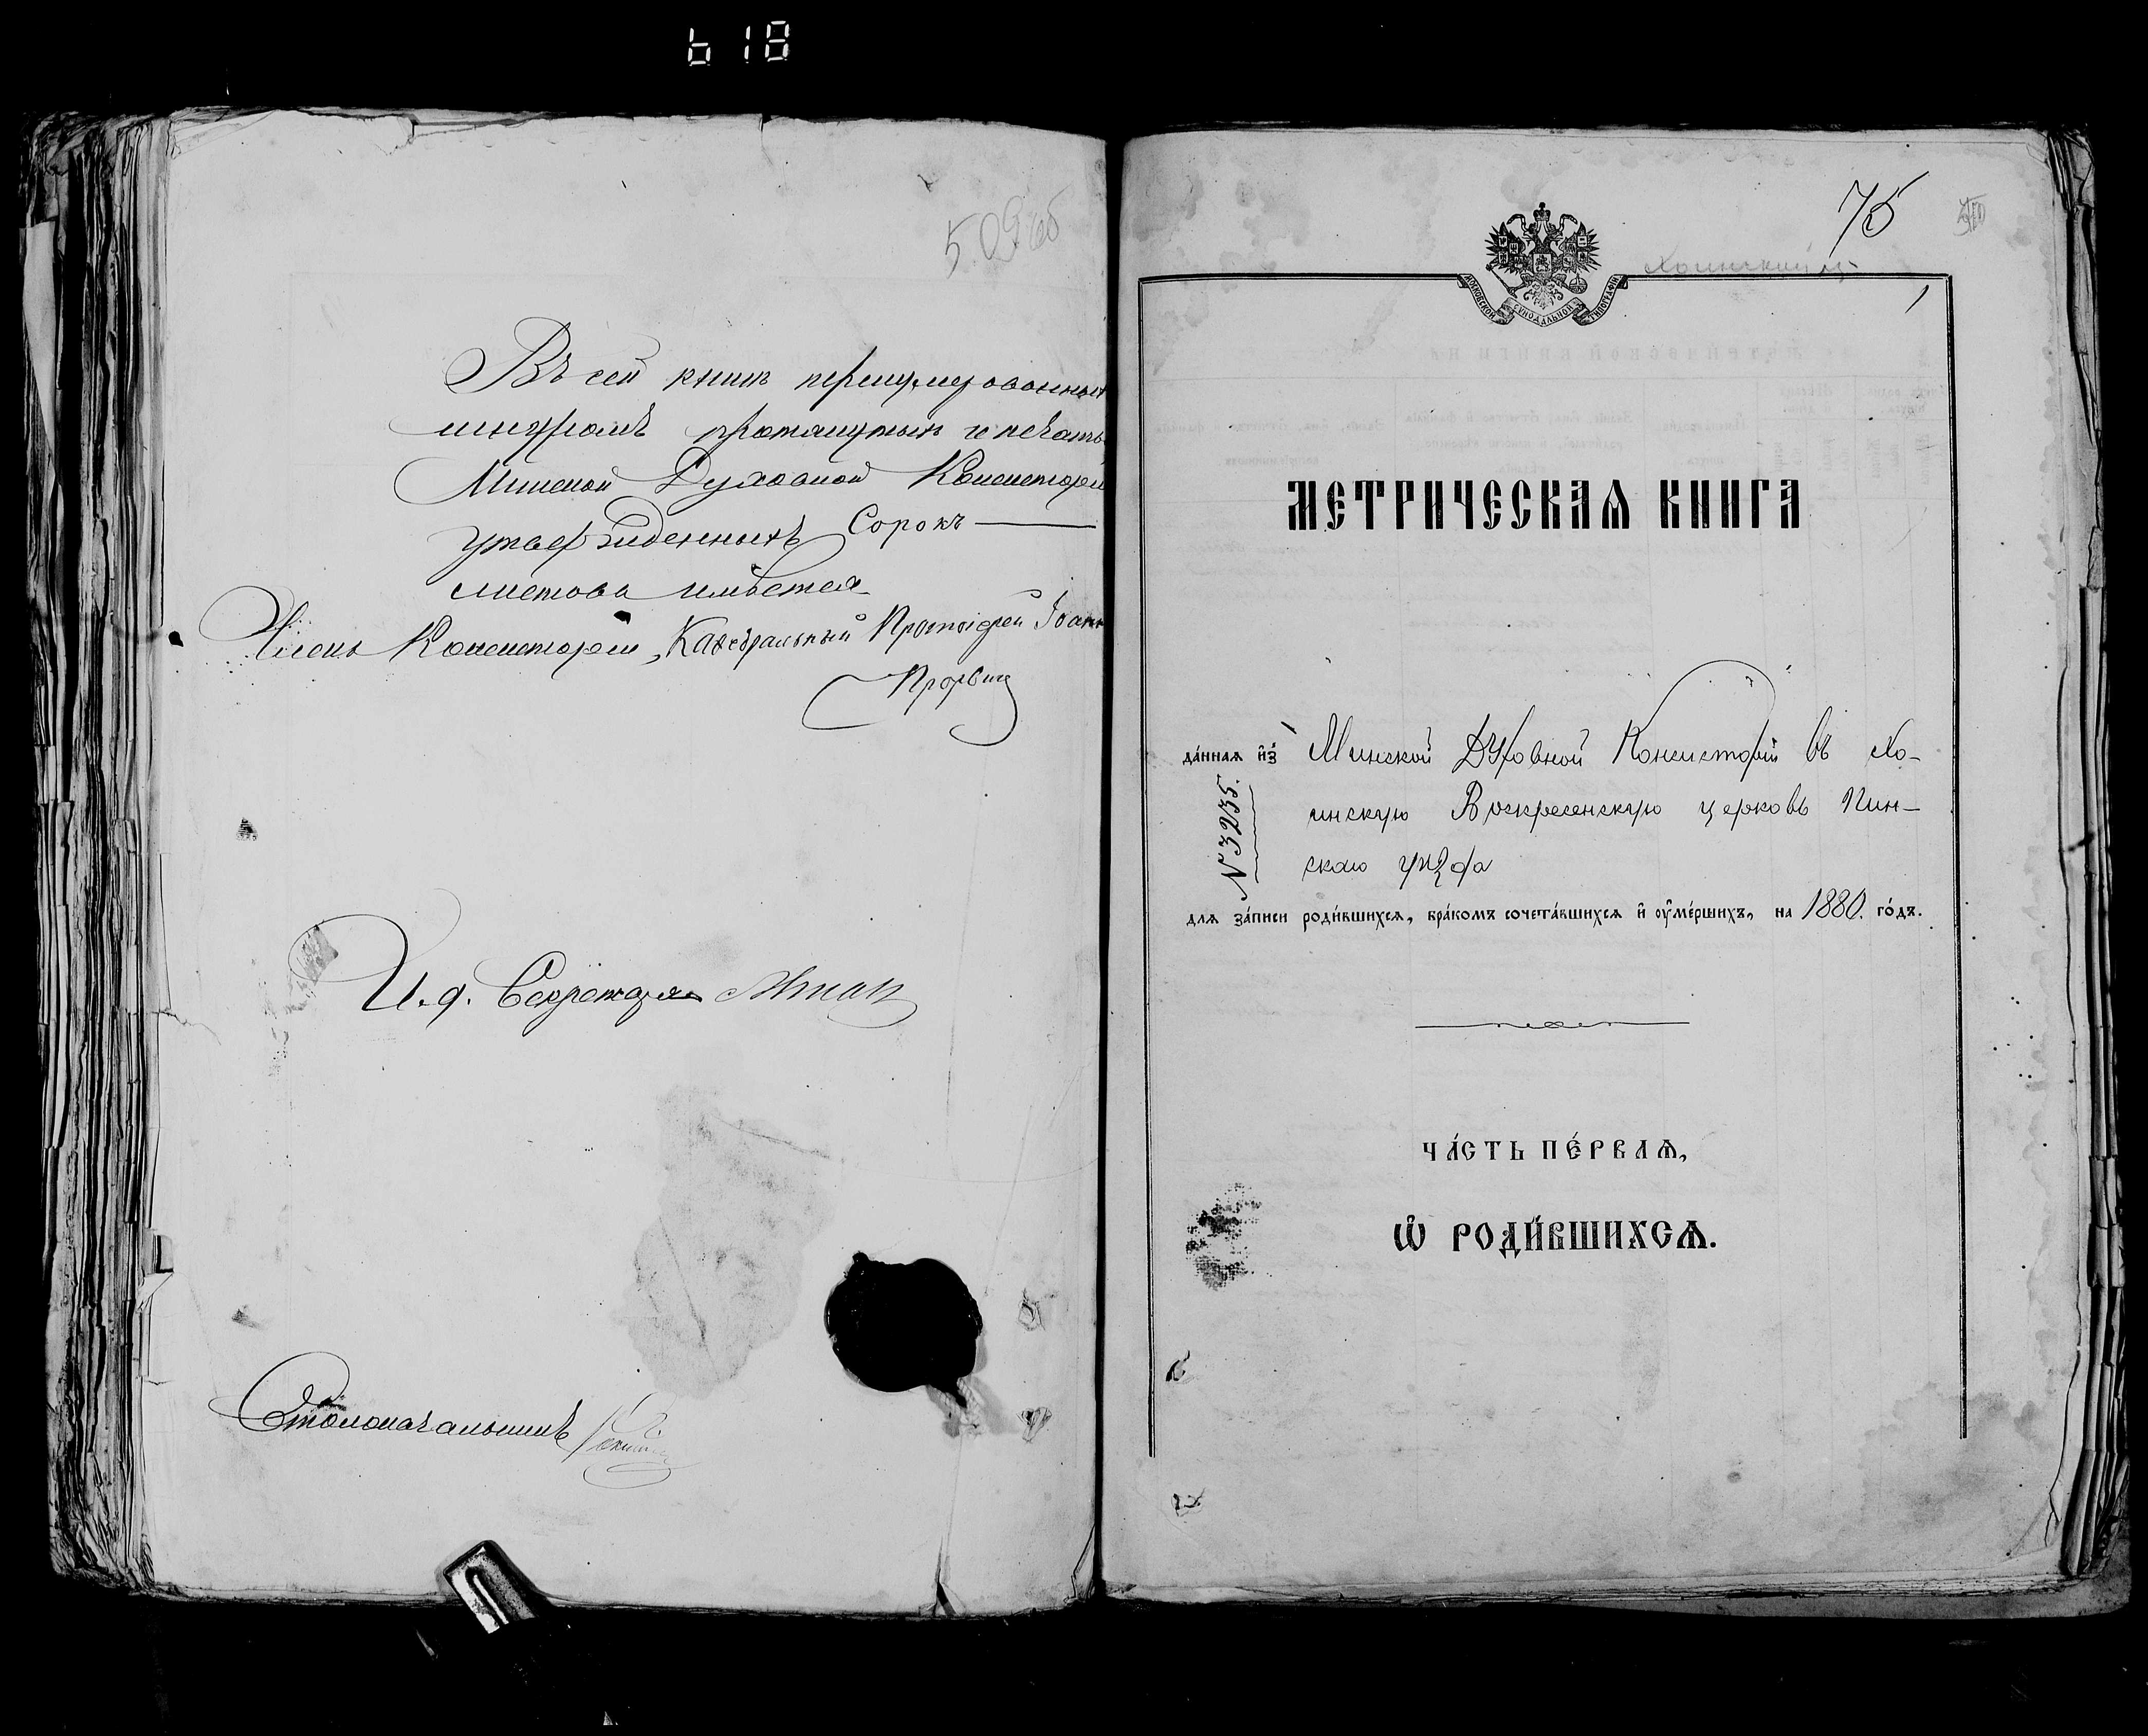 618
509об
Въ сей книгѣ перенумерованныхъ
шнуромъ протянутыхъ и печатью
Минской Духовной Консисторіи
утвержденныхъ Сорокъ
листовъ имѣется
Членъ Консисторіи, Каѳедральный Протоіерей Іоаннъ
И. д. Секретаря
Столоначальникъ
75
510
1
МОСКОВСКОЙ СѴНОДАЛЬНОЙ ТИПОГРАФІИ
МЕТРИЧЕСКАѦ КНИГА
да́ннаѧ и҆з̾ Минской Духовной Консисторіи въ Хо-
инскую Воскресенскую церковь Пин-
скаго уѣзда
№ 3235.
для за́писи роди́вшихсѧ, бра́комъ сочета́вшихсѧ и҆ ᲂу҆ме́ршихъ, на 1880. го́дъ.
ЧА́СТЬ ПЕ́РВАѦ,
Ѡ҆ РОДИ́ВШИХСѦ.